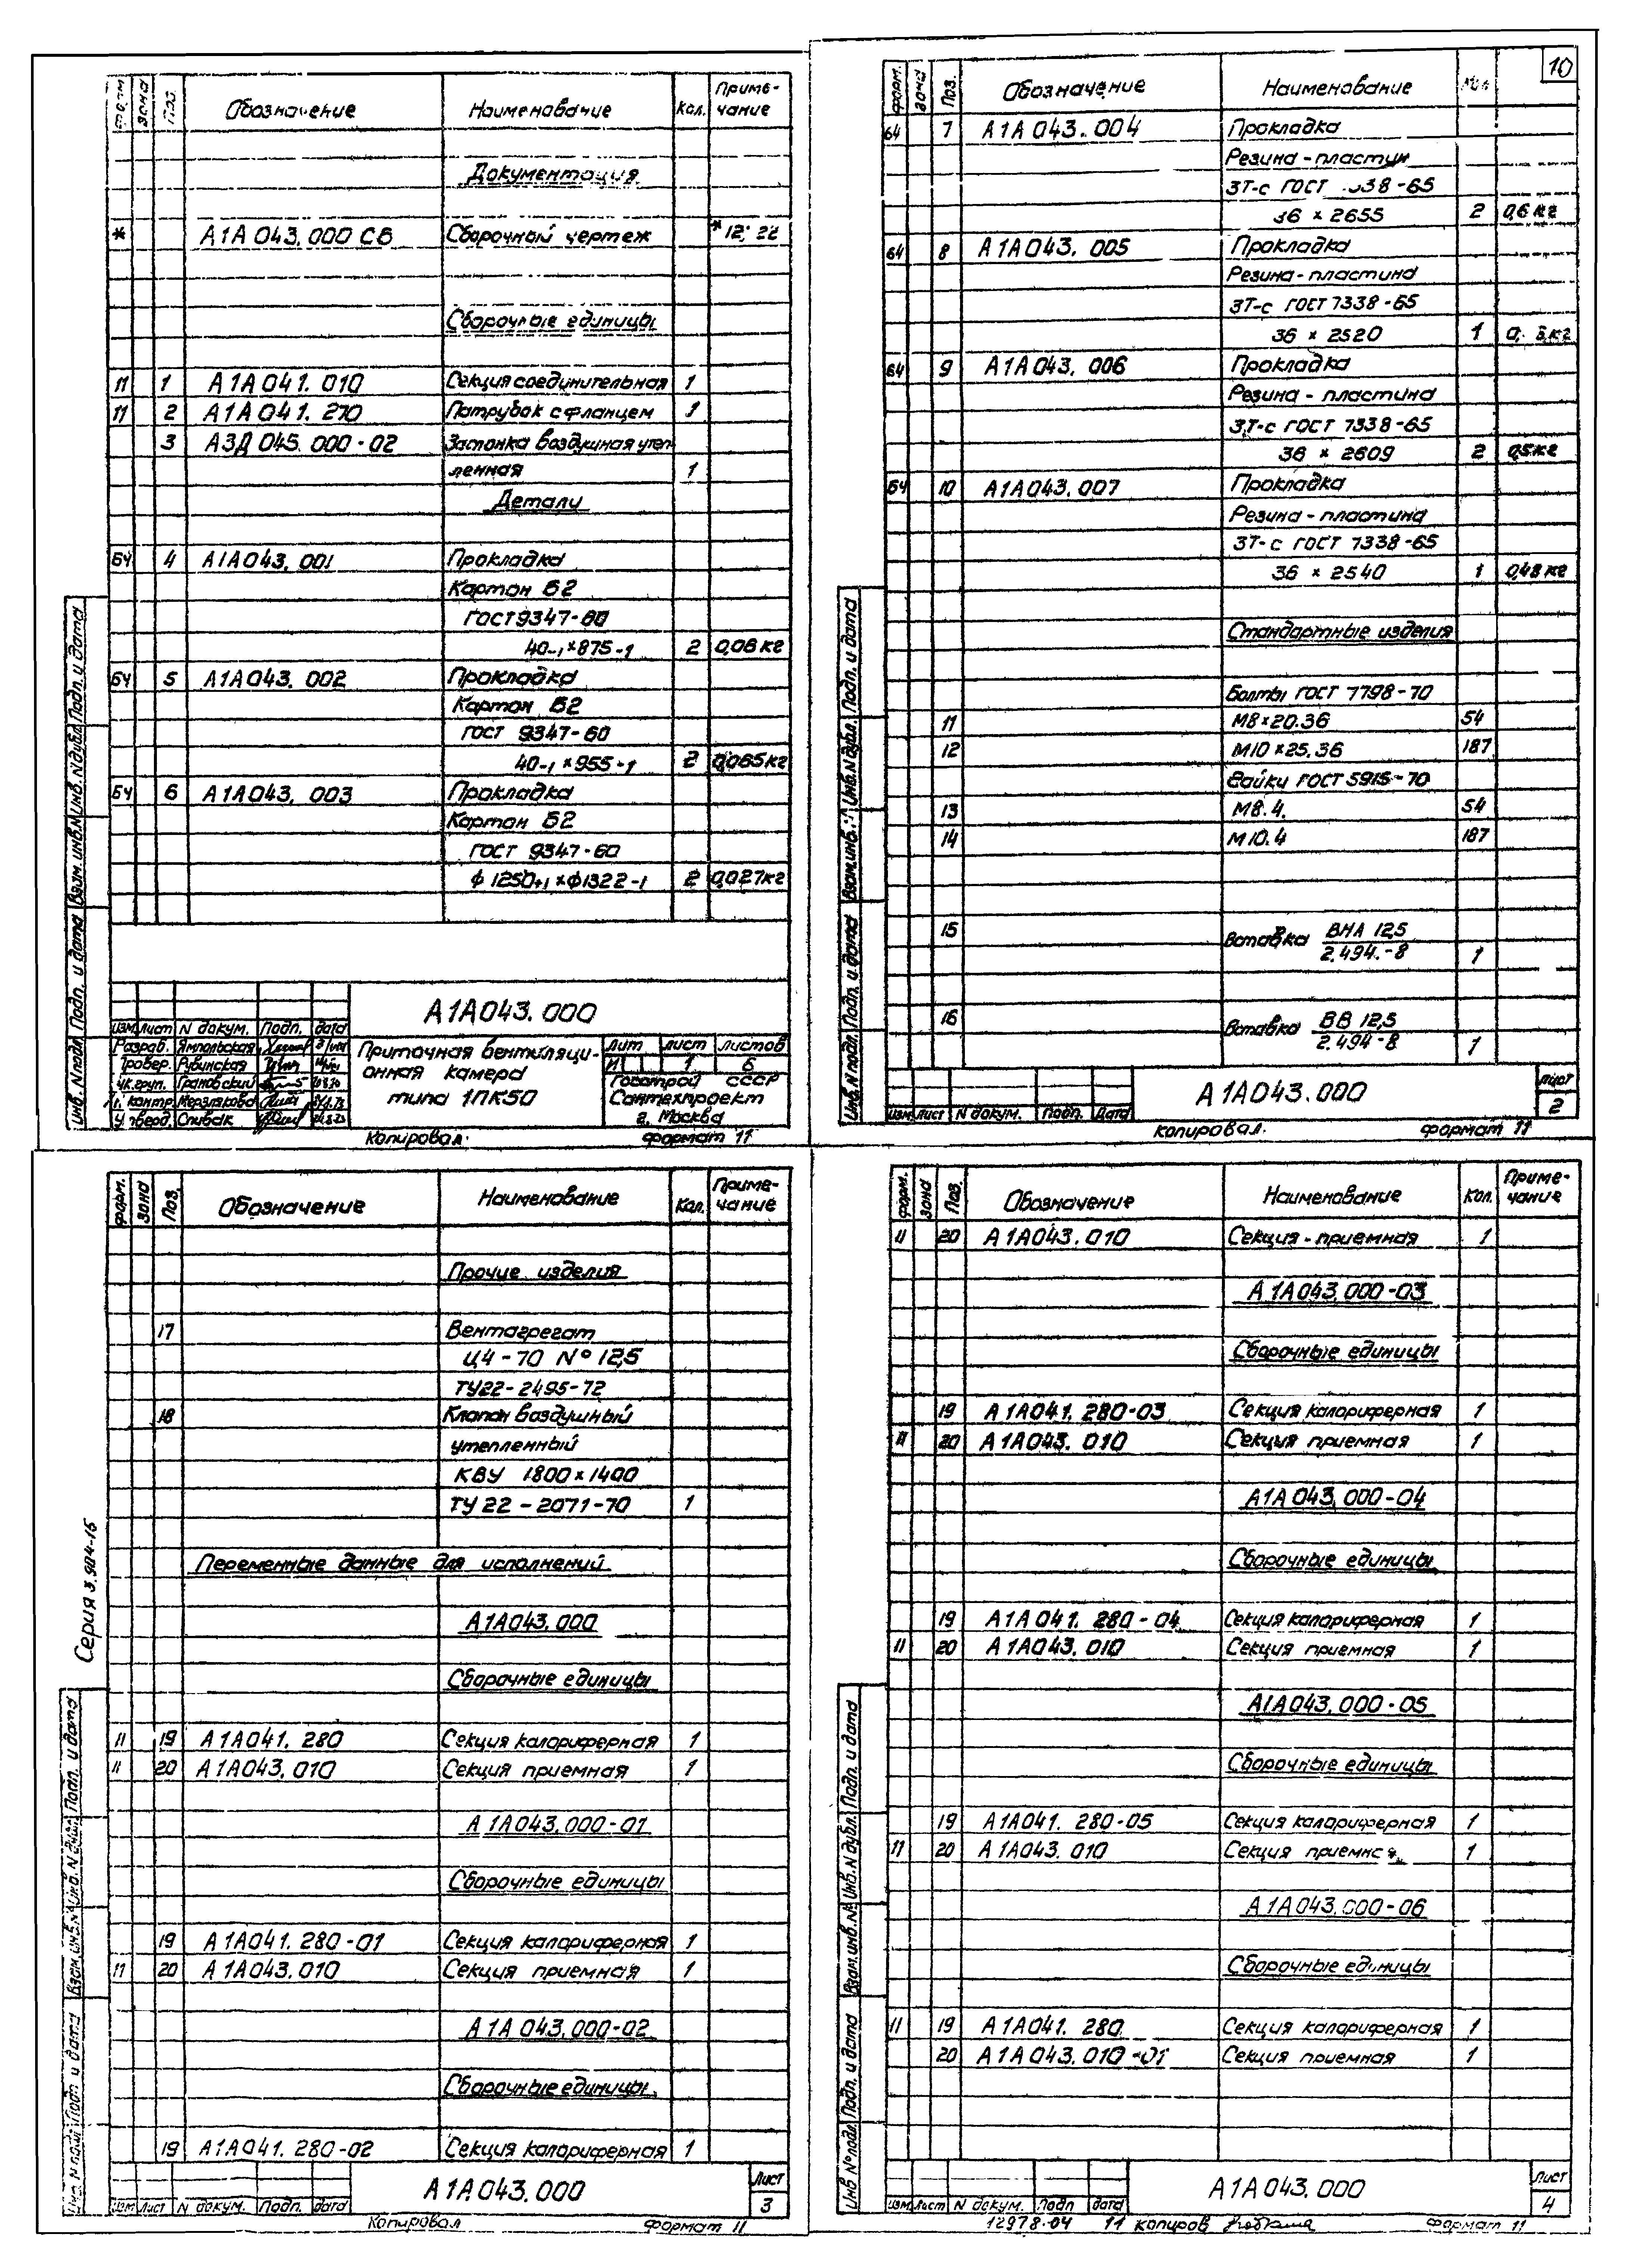 форм. зона Поз. Обозначение Наименование Кол. Приме-
чание
Документация
* А1А043.000 СБ Сборочный чертеж *12; 22
Сборочные единицы
11 1 А1А041.010 Секция соединительная 1
11 2 А1А041.270 Патрубок с фланцем 1
3 А3Д045.000-02 Заслонка воздушная утеп-
ленная 1
Детали
БЧ 4 А1А043.001 Прокладка
Картон Б2
ГОСТ 9347-60
40-1×875-1 2 0,06 кг
БЧ 5 А1А043.002 Прокладка
Картон Б2
ГОСТ 9347-60
40-1×955-1 2 0,065кг
БЧ 6 А1А043.003 Прокладка
Картон Б2
ГОСТ 9347-60
ф1250+1×ф1322-1 2 0,027кг
Инв. N подл. Подп. и дата Взам. инв. N Инв. N дубл. Подп. и дата
А1А043.000
Изм. Лист N докум. Подп. Дата
Разраб. Ямпольская
Провер. Рубинская
Рук. груп. Грановский
Н. контр. Мерзлякова
Утверд. Спивак
Приточная вентиляци-
онная камера
типа 1ПК50
Лит Лист Листов
И 1 6
Госстрой СССР
Сантехпроект
г. Москва
Копировал: формат 11
10
форм. зона Поз. Обозначение Наименование Кол.
БЧ 7 А1А043.004 Прокладка
Резина-пластин
3Т-с ГОСТ 338-65
36 × 2655 2 0,6 кг
БЧ 8 А1А043.005 Прокладка
Резина-пластина
3Т-с ГОСТ 7338-65
36 × 2520 1
БЧ 9 А1А043.006 Прокладка
Резина-пластина
3Т-с ГОСТ 7338-65
36 × 2609 2 0,5кг
БЧ 10 А1А043.007 Прокладка
Резина-пластина
3Т-с ГОСТ 7338-65
36 × 2540 1 0,48 кг
Стандартные изделия
Болты ГОСТ 7798-70
11 М8×20.36 54
12 М10×25.36 187
Гайки ГОСТ 5915-70
13 М8.4. 54
14 М10.4 187
15 Вставка ВНА 12,5
2.494.-8 1
16 Вставка ВВ 12,5
2.494-8 1
Инв. N подл. Подп. и дата Взам. инв. Инв. N дубл. Подп. и дата
Изм. Лист N докум. Подп. Дата А1А043.000 Лист
2
Копировал. формат 11
форм. зона Поз. Обозначение Наименование Кол. Приме-
чание
Прочие изделия
17 Вентагрегат
Ц4-70 N° 12,5
ТУ22-2495-72
18 Клапан воздушный
утепленный
КВУ 1800×1400
ТУ 22-2071-70 1
Переменные данные для исполнений
А1А043.000
Сборочные единицы
11 19 А1А041.280 Секция калориферная 1
11 20 А1А043.010 Секция приемная 1
А1А043.000-01
Сборочные единицы
19 А1А041.280-01 Секция калориферная 1
11 20 А1А043.010 Секция приемная 1
А1А043.000-02
Сборочные единицы
19 А1А041.280-02 Секция калориферная 1
Серия 3.904-15
Инв. N подл. Подп. и дата Взам. инв. N Инв. N дубл. Подп. и дата
Изм. Лист N докум. Подп. Дата А1А043.000 Лист
3
Копировал формат 11
форм. зона Поз. Обозначение Наименование Кол. Приме-
чание
11 20 А1А043.010 Секция-приемная 1
А1А043.000-03
Сборочные единицы
19 А1А041.280-03 Секция калориферная 1
11 20 А1А043.010 Секция приемная 1
А1А043.000-04
Сборочные единицы
19 А1А041.280-04 Секция калориферная 1
11 20 А1А043.010 Секция приемная 1
А1А043.000-05
Сборочные единицы
19 А1А041.280-05 Секция калориферная 1
11 20 А1А043.010 Секция 1
А1А043.000-06
Сборочные единицы
11 19 А1А041.280 Секция калориферная 1
20 А1А043.010-01 Секция приемная 1
Инв N° подл. Подп. и дата Взам. инв. N° Инв. N дубл. Подп. и дата
Изм. Лист N докум. Подп Дата А1А043.000 Лист
4
12978-04 11 копиров формат 11